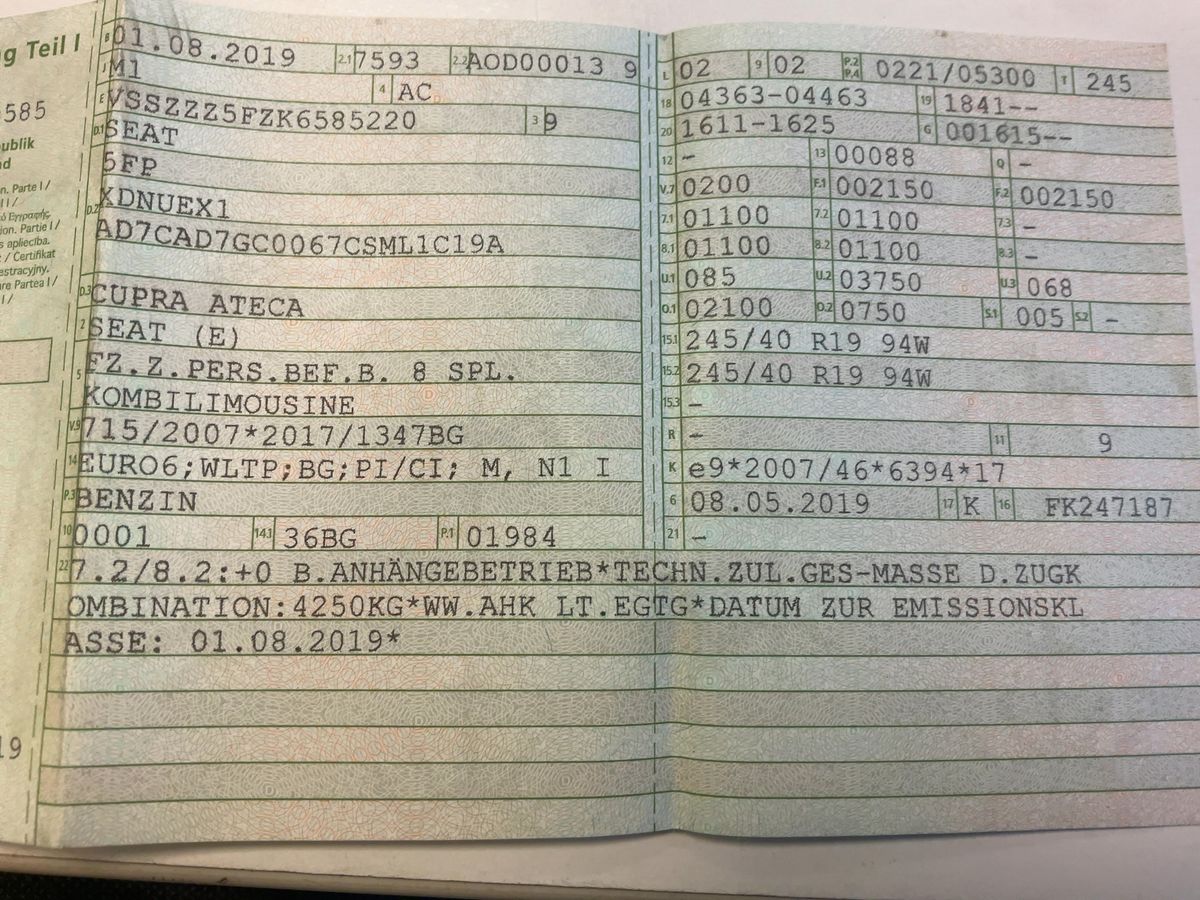 g Teil I
585
ublik
d
on. Parte I /
I I /
ó Εγγραφής,
ion. Partie I /
s aplieciba.
t / Certifikat
estracyjny.
are Partea I /
I /
19
B 01.08.2019 2.1 7593 2.2 AOD00013 9
J M1 4 AC
E VSSZZZ5FZK6585220 3 9
D.1 SEAT
5FP
D.2 XDNUEX1
AD7CAD7GC0067CSML1C19A
D.3 CUPRA ATECA
2 SEAT (E)
5 FZ.Z.PERS.BEF.B. 8 SPL.
KOMBILIMOUSINE
V.9 715/2007*2017/1347BG
14 EURO6;WLTP;BG;PI/CI; M, N1 I
P.3 BENZIN
10 0001 14.1 36BG P.1 01984
L 02 9 02 P.2 P.4 0221/05300 T 245
18 04363-04463 19 1841--
20 1611-1625 G 001615--
12 - 13 00088 Q -
V.7 0200 F.1 002150 F.2 002150
7.1 01100 7.2 01100 7.3 -
8.1 01100 8.2 01100 8.3 -
U.1 085 U.2 03750 U.3 068
O.1 02100 O.2 0750 S.1 005 S.2 -
15.1 245/40 R19 94W
15.2 245/40 R19 94W
15.3 -
R - 11 9
K e9*2007/46*6394*17
6 08.05.2019 17 K 16 FK247187
21 -
22 7.2/8.2:+0 B.ANHÄNGEBETRIEB*TECHN.ZUL.GES-MASSE D.ZUGK
OMBINATION:4250KG*WW.AHK LT.EGTG*DATUM ZUR EMISSIONSKL
ASSE: 01.08.2019*